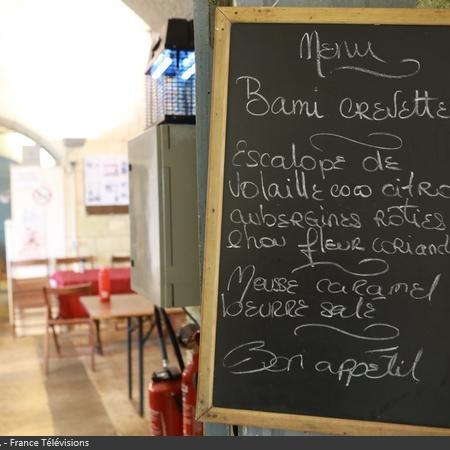 Menu
Bami crevette
Escalope de
volaille coco citro
aubergines roties
chou fleur coriand
Mousse caramel
beurre salé
Bon appétit
- France Télévisions